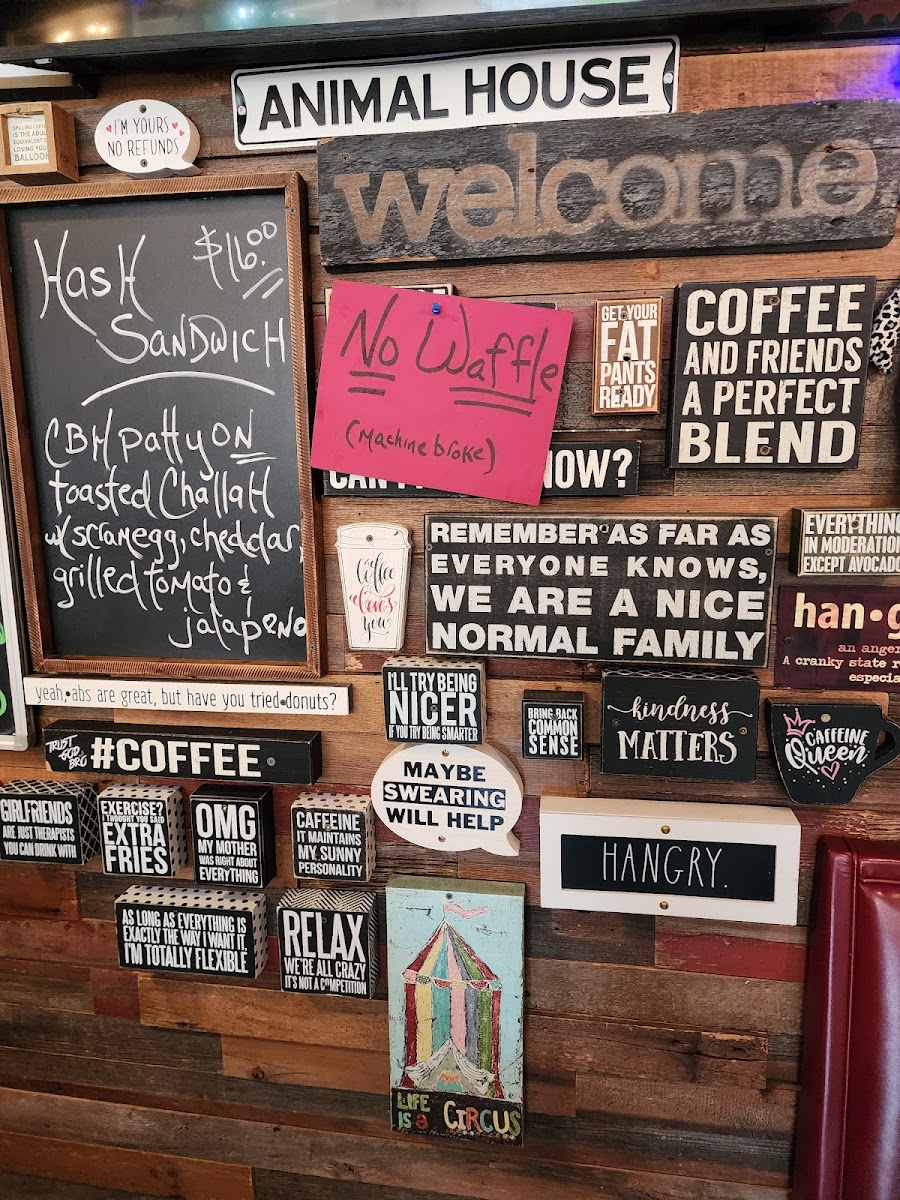 ANIMAL HOUSE
SPILLING COFFEE
IS THE ADULT
EQUIVALENT OF
LOSING YOUR
BALLOON
I'M YOURS
NO REFUNDS
welcome
HasH $16.00
SANDWICH
CBH patty ON
toasted CHallaH
w/ scram egg, cheddar,
grilled tomato &
jalapeNo
No Waffle
(Machine broke)
NOW?
GET YOUR
FAT
PANTS
READY
COFFEE
AND FRIENDS
A PERFECT
BLEND
Coffee
loves
you
REMEMBER AS FAR AS
EVERYONE KNOWS,
WE ARE A NICE
NORMAL FAMILY
EVERYTHING
IN MODERATION
EXCEPT AVOCADO
han•g
an anger
A cranky state r
especia
yeah, abs are great, but have you tried donuts?
I'LL TRY BEING
NICER
IF YOU TRY BEING SMARTER
BRING BACK
COMMON
SENSE
kindness
MATTERS
CAFFEINE
Queen
TRUST
GOD
BRO
#COFFEE
MAYBE
SWEARING
WILL HELP
GIRLFRIENDS
ARE JUST THERAPISTS
YOU CAN DRINK WITH
EXERCISE?
I THOUGHT YOU SAID
EXTRA
FRIES
OMG
MY MOTHER
WAS RIGHT ABOUT
EVERYTHING
CAFFEINE
IT MAINTAINS
MY SUNNY
PERSONALITY
HANGRY.
AS LONG AS EVERYTHING IS
EXACTLY THE WAY I WANT IT,
I'M TOTALLY FLEXIBLE
RELAX
WE'RE ALL CRAZY
IT'S NOT A COMPETITION
LIFE
is a CIRCUS